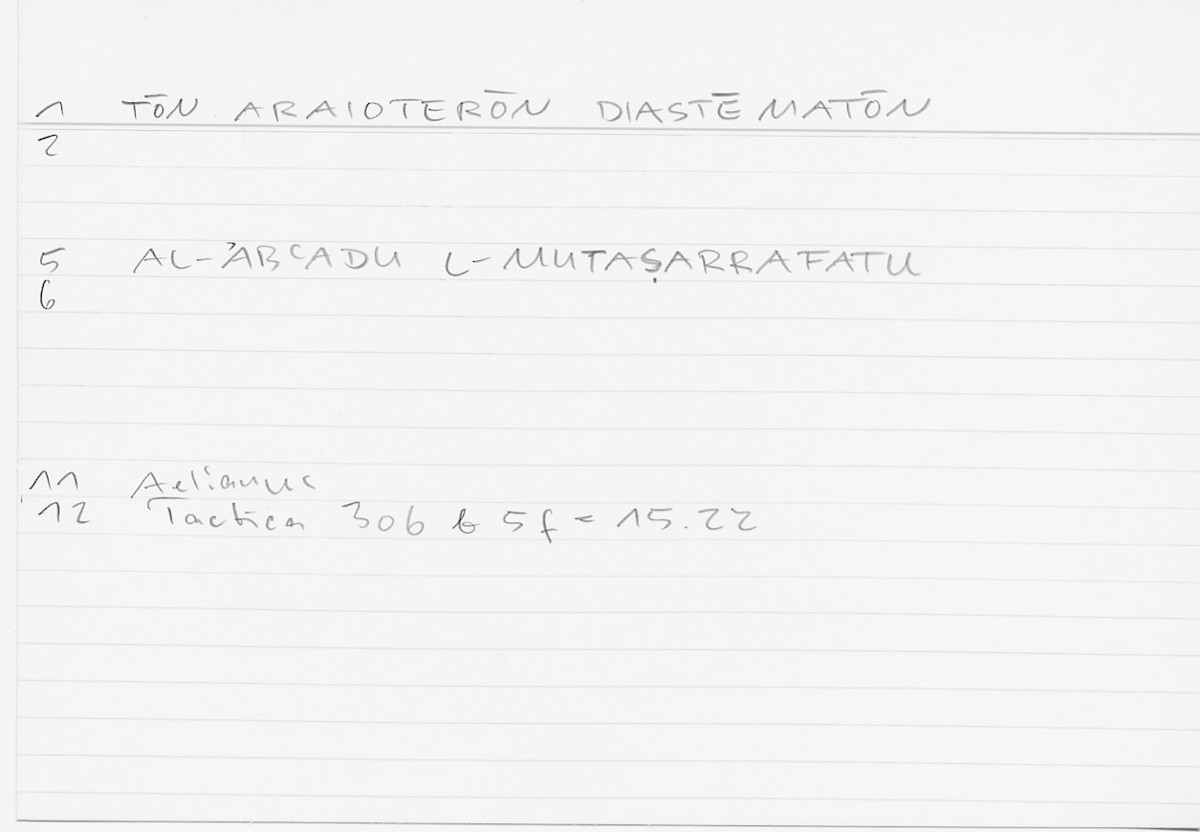 1 TŌN ARAIOTERŌN DIASTĒMATŌN
2
5 AL-ʾABʿADU L-MUTAṢARRAFATU
6
11 Aelianus
12 Tactica 306 b 5 f = 15.22